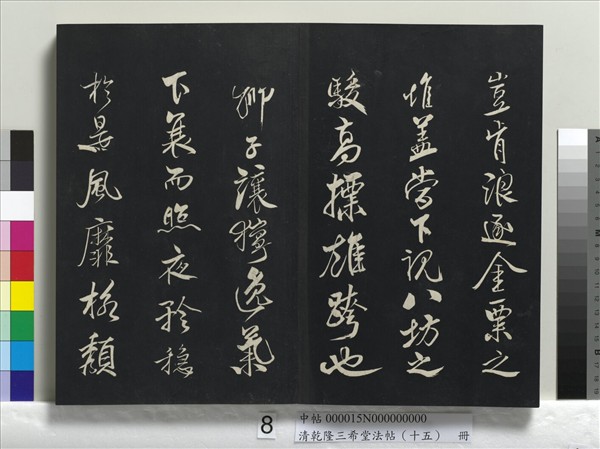 豈肯浪逐金粟之
堆盖當下視八坊之
駿高標雄跨也
獅子讓獰逸氣
下衰而照夜矜穩
於是風靡格頹
8
中帖 000015N000000000
清乾隆三希堂法帖(十五) 冊